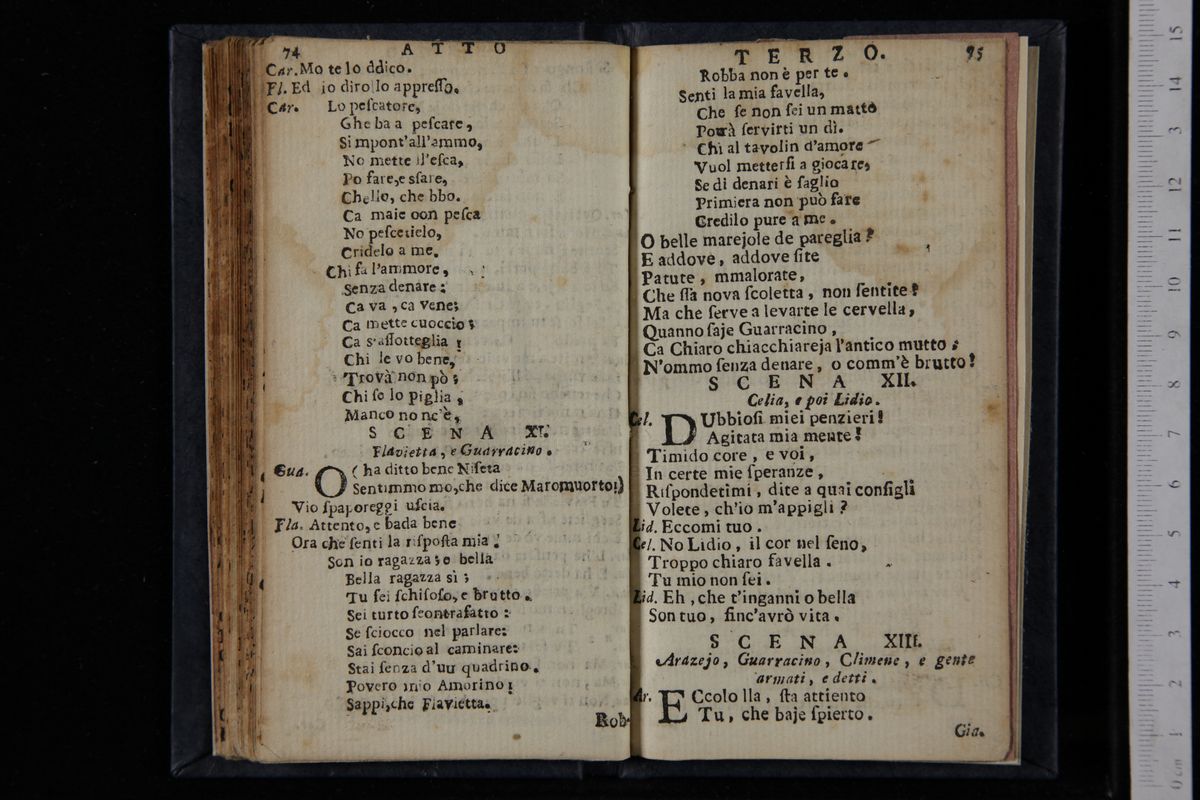 74 ATTO
Car. Mo te lo ddico.
Fl. Ed io dirollo appresso.
Car. Lo pescatore,
Ghe ba a pescare,
Si mpont'all'ammo,
No mette ll'esca,
Po fare, e sfare,
Chello, che bbo.
Ca maie oon pesca
No pescetielo,
Cridelo a me.
Chi fa l'ammore,
Senza denare:
Ca va, ca vene;
Ca mette cuoccio;
Ca s'assotteglia;
Chi le vo bene,
Trovà non pò;
Chi se lo piglia,
Manco no nc'è,
SCENA XI.
Flavietta, e Guarracino.
Gua. O (ha ditto bene Niseta
Sentimmo mo, che dice Maromuorto;)
Vio spaporeggi uscia.
Fla. Attento, e bada bene
Ora che senti la risposta mia!
Son io ragazza; e bella
Bella ragazza sì;
Tu sei schifoso, e brutto.
Sei turto scontrafatto:
Se sciocco nel parlare:
Sai sconcio al caminare:
Stai senza d'un quadrino.
Povero mio Amorino;
Sappi, che Flavietta.
Rob-
TERZO. 95
Robba non è per te.
Senti la mia favella,
Che se non sei un matto
Potrà servirti un dì.
Chi al tavolin d'amore
Vuol mettersi a giocare,
Se di denari è faglio
Primiera non può fare
Credilo pure a me.
O belle marejole de pareglia?
E addove, addove site
Patute, mmalorate,
Che ssà nova scoletta, non sentite?
Ma che serve a levarte le cervella,
Quanno saje Guarracino,
Ca Chiaro chiacchiareja l'antico mutto:
N'ommo senza denare, o comm'è brutto!
SCENA XII.
Celia, e poi Lidio.
Cel. DUbbiosi miei penzieri!
Agitata mia mente!
Timido core, e voi,
In certe mie speranze,
Rispondetimi, dite a quai consigli
Volete, ch'io m'appigli?
Lid. Eccomi tuo.
Cel. No Lidio, il cor nel seno,
Troppo chiaro favella.
Tu mio non sei.
Lid. Eh, che t'inganni o bella
Son tuo, finc'avrò vita.
SCENA XIII.
Arazejo, Guarracino, Climene, e gente
armati, e detti.
Ar. ECcolo lla, sta attiento
Tu, che baje spierto.
Gia.
0 cm 1 2 3 4 5 6 7 8 9 10 11 12 13 14 15